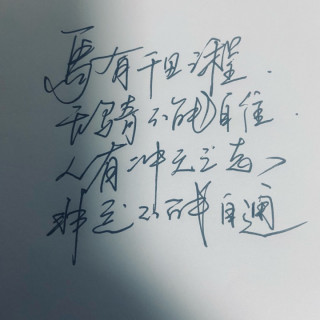 馬有千里之程，
无骑不能自往．
人有冲天之志，
非运不能自通